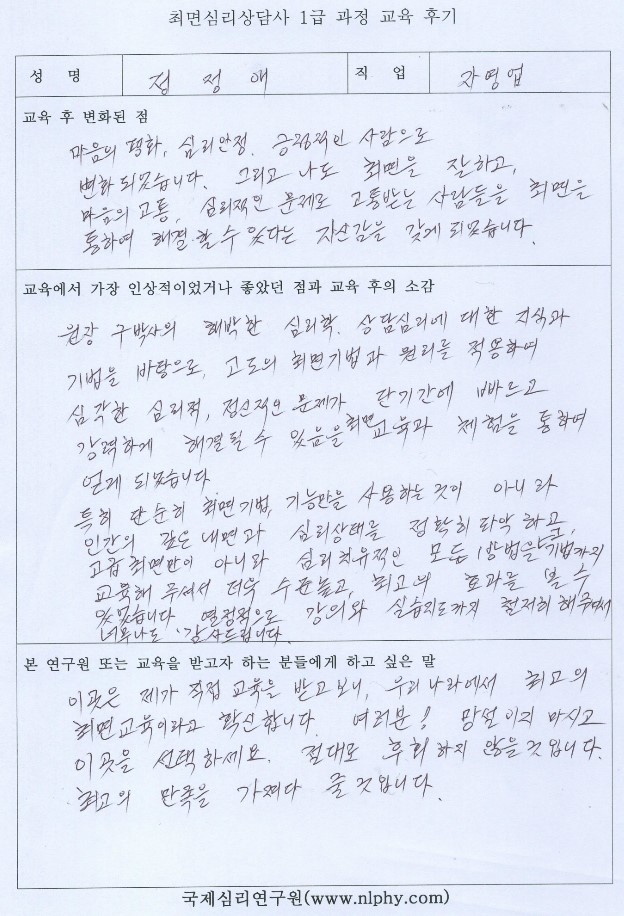 최면심리상담사 1급 과정 교육 후기
성 명 정 정 애 직 업 자영업
교육 후 변화된 점
마음의 평화, 심리안정. 긍정적인 사람으로
변화되었습니다. 그리고 나도 최면을 잘하고,
마음의 고통, 심리적인 문제로 고통받는 사람들을 최면을
통하여 해결할 수 있다는 자신감을 갖게 되었습니다.
교육에서 가장 인상적이었거나 좋았던 점과 교육 후의 소감
원장 구박사의 해박한 심리학. 상담심리에 대한 지식과
기법을 바탕으로, 고도의 최면기법과 원리를 적용하여
심각한 심리적, 정신적인 문제가 단기간에 빠르고
강력하게 해결될 수 있음을 최면교육과 체험을 통하여
얻게 되었습니다
특히 단순히 최면기법, 기능만을 사용하는 것이 아니라
인간의 깊은 내면과 심리상태를 정확히 파악하고,
고급최면만이 아니라 심리치유적인 모든 방법을 기법까지
교육해 주셔서 더욱 수준높고, 최고의 효과를 볼 수
있었습니다 열정적으로 강의와 실습지도까지 철저히 해주셔서
너무나도 감사드립니다.
본 연구원 또는 교육을 받고자 하는 분들에게 하고 싶은 말
이곳은 제가 직접 교육을 받고보니, 우리나라에서 최고의
최면교육이라고 확신합니다. 여러분! 망설이지 마시고
이곳을 선택하세요. 절대로 후회하지 않을것입니다.
최고의 만족을 가져다 줄것입니다.
국제심리연구원(www.nlphy.com)